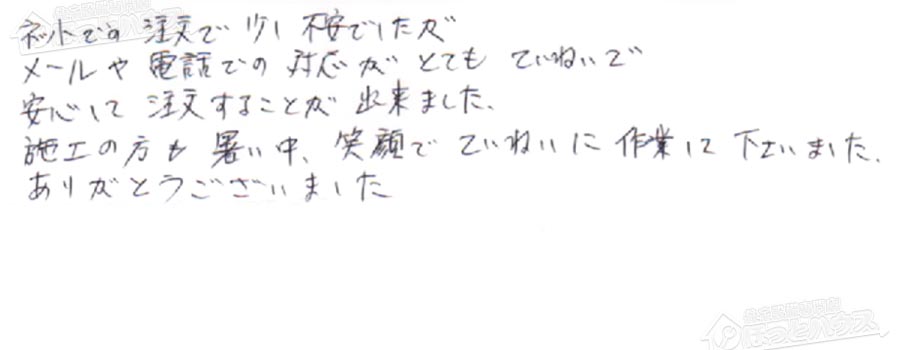 ネットでの注文で少し不安でしたが
メールや電話での対応がとてもていねいで
安心して注文することが出来ました、
施工の方も暑い中、笑顔でていねいに作業して下さいました、
ありがとうございました
ほっとハウス